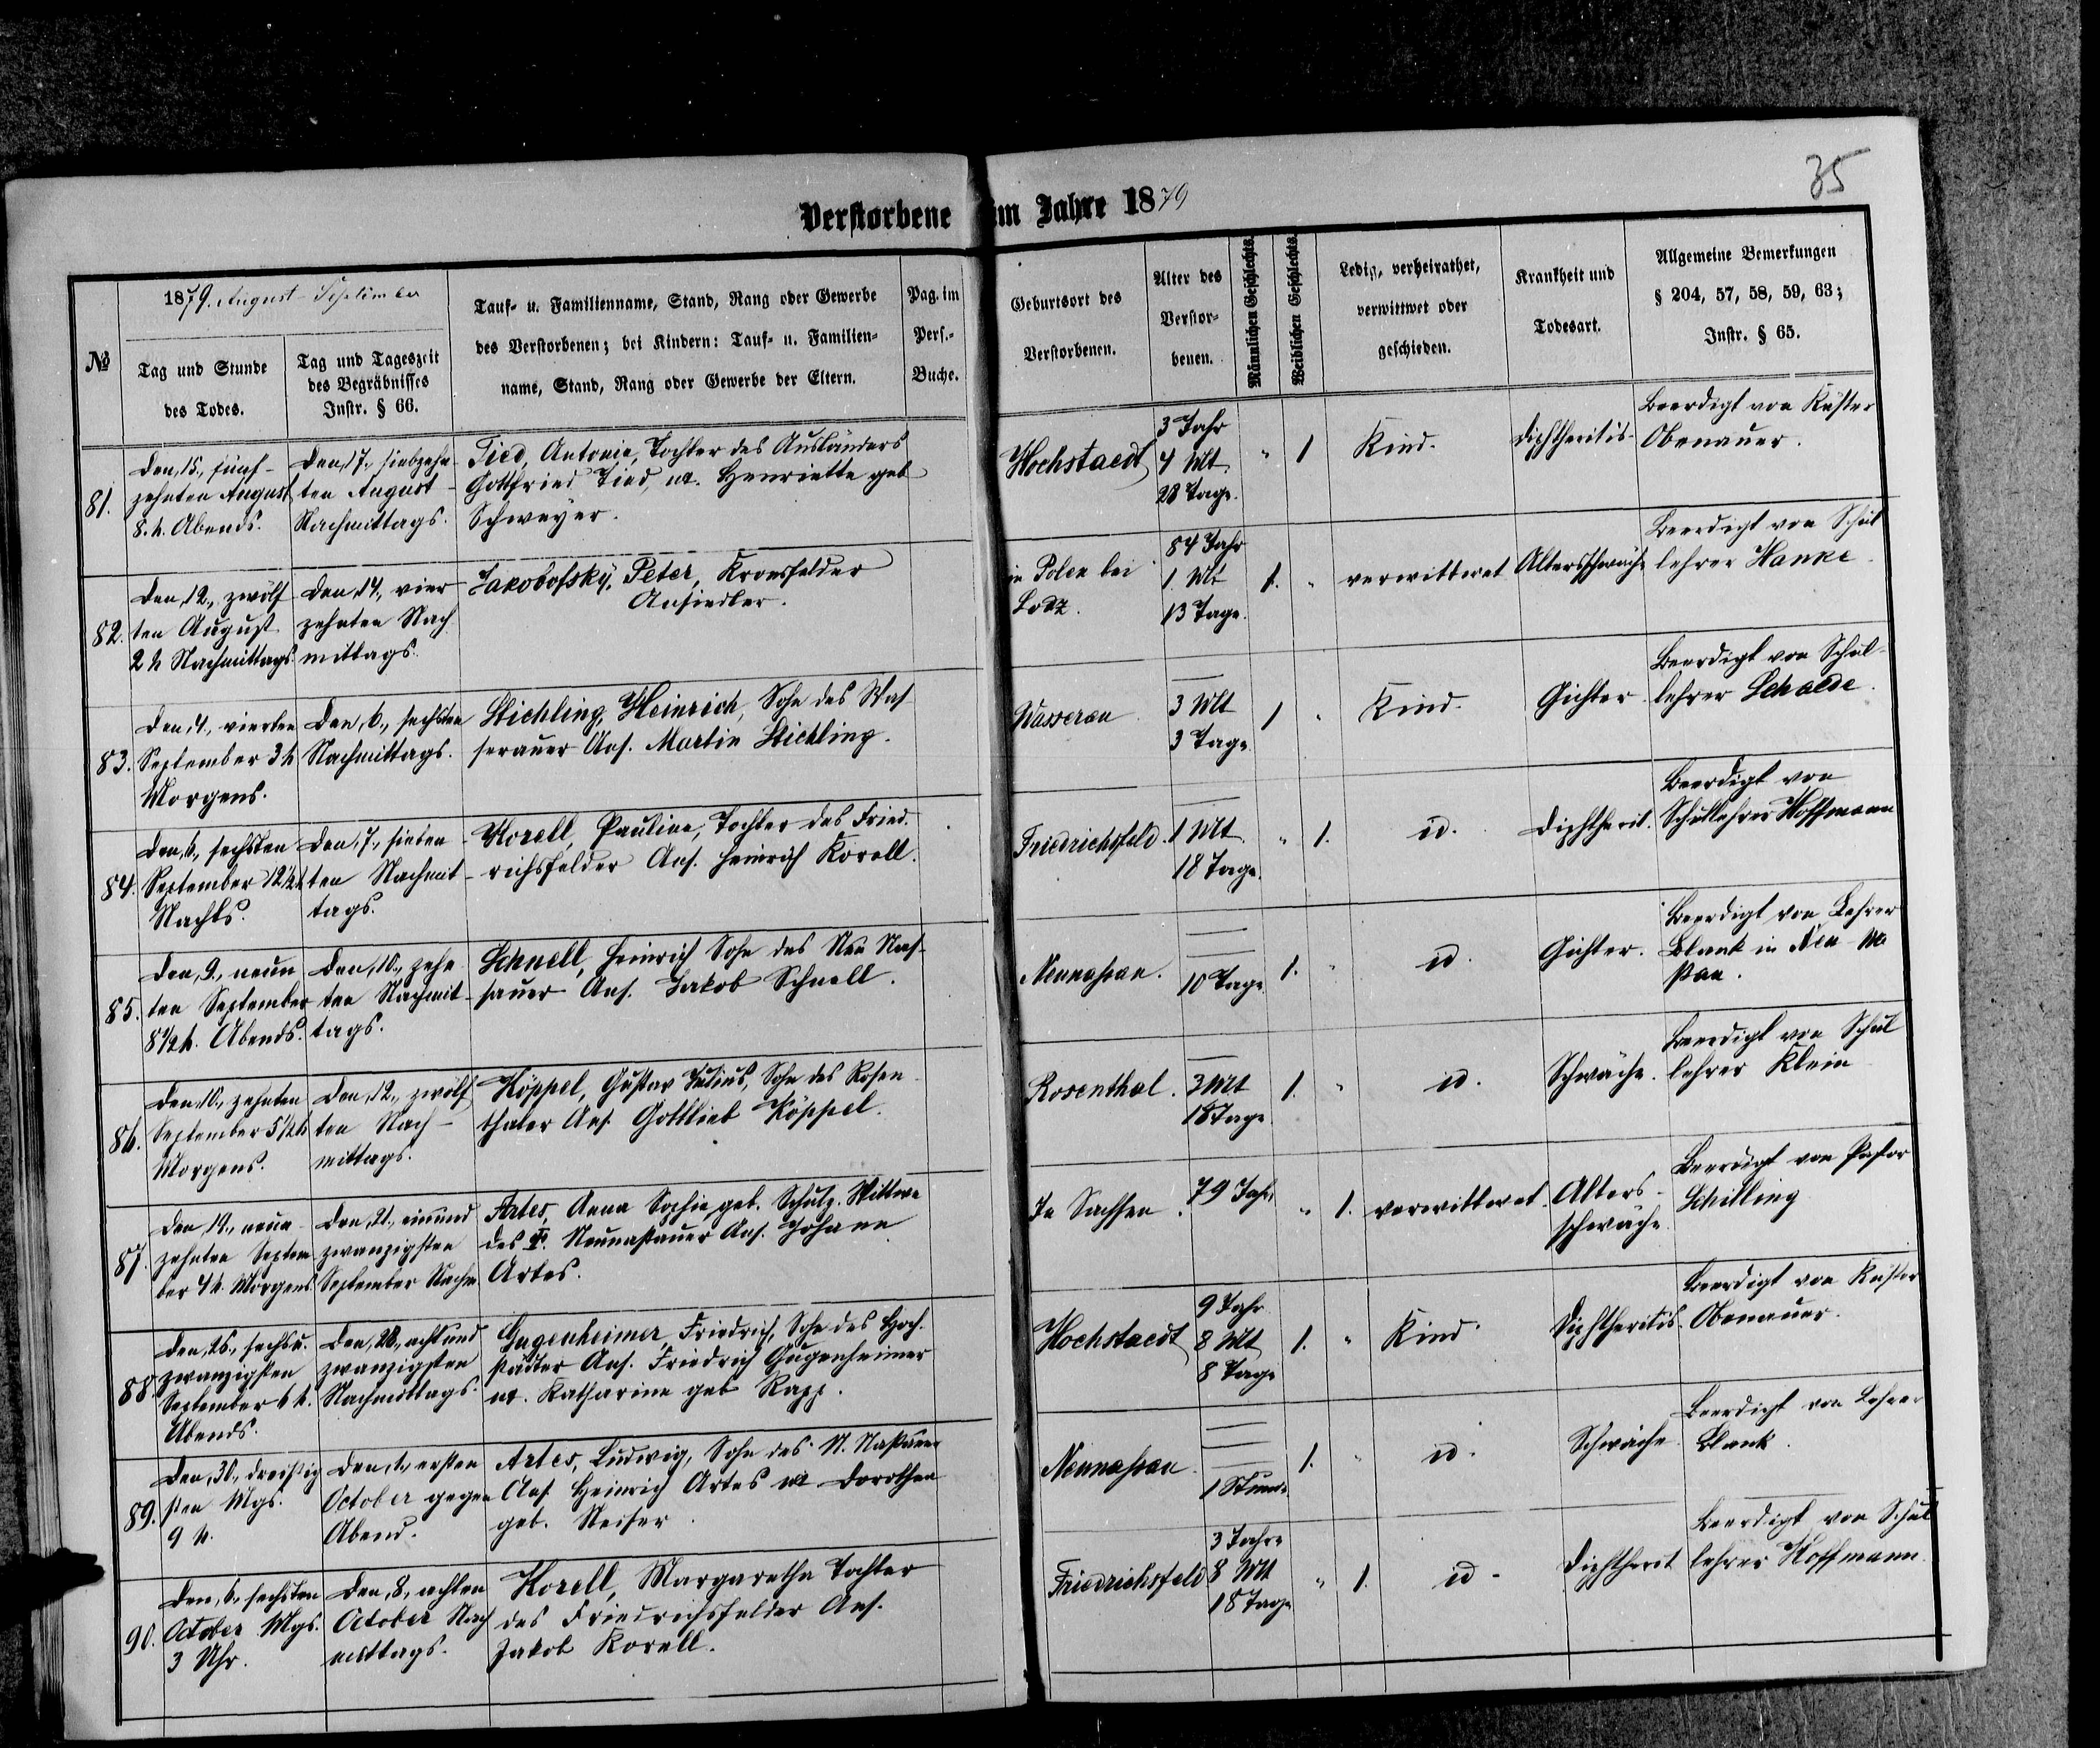 35
Verstorbene im Jahre 1879
№
1879. August - September
Tag und Stunde
des Todes.
Tag und Tageszeit
des Begräbnisses
Instr. § 66.
Tauf- u. Familienname, Stand, Rang oder Gewerbe
des Verstorbenen; bei Kindern: Tauf- u. Familien-
name, Stand, Rang oder Gewerbe der Eltern.
Pag. im
Pers.-
Buche.
Geburtsort des
Verstorbenen.
Alter des
Verstor-
benen.
Männlichen Geschlechts.
Weiblichen Geschlechts.
Ledig, verheirathet,
verwittwet oder
geschieden.
Krankheit und
Todesart.
Allgemeine Bemerkungen
§ 204, 57, 58, 59, 63;
Instr. § 65.
81.
Den 15., fünf-
zehnten August
8. h. Abends.
Den 17., siebzehn-
ten August
Nachmittags.
Tied, Antonie, Tochter des Ausländers
Gottfried Tied, u. Henriette geb
Schweyer.
Hochstaedt
3 Jahr
4 Mt
28 Tage.
" 1
Kind.
Diphtheritis
Beerdigt von Küster
Obenauer.
82.
Den 12., zwölf
ten August
2 h Nachmittags
Den 14., vier
zehnten Nach
mittags.
Jakobofsky, Peter, Kronsfelder
Ansiedler.
in Polen bei
Lodz.
84 Jahr
1 Mt
13 Tage.
1. "
verwittwet
Altersschwäche
Beerdigt von Schul
lehrer Hanke.
83.
Den 4., vierten
September 3 h
Morgens.
Den 6., sechsten
Nachmittags.
Stichling, Heinrich, Sohn des Was-
serauer Ans. Martin Stichling.
Wasserau
3 Mt
3 Tage
1 "
Kind.
Gichter
Beerdigt von Schul-
lehrer Schaede.
84.
Den 6., sechsten
September 12 1/2 h
Nachts.
Den 7., sieben-
ten Nachmit-
tags.
Korell, Pauline, Tochter des Fried-
richsfelder Ans. Heinrich Korell.
Friedrichsfeld.
1 Mt
18 Tage.
" 1.
id.
Diphtherit.
Beerdigt von
Schullehrer Hoffmann
85.
Den 9., neun
ten September
8 1/2 h. Abends.
Den 10., zehn
ten Nachmit-
tags.
Schnell, Heinrich Sohn des Neu Nas-
sauer Ans. Jakob Schnell.
Neunassau.
10 Tage
1. "
id.
Gichter.
Beerdigt von Lehrer
Blank in Neu Na
ssau.
86.
Den 10., zehnten
September 5 1/2 h
Morgens.
Den 12., zwölf
ten Nach-
mittags.
Köppel, Gustav Julius, Sohn des Rosen
thaler Ans. Gottlieb Köppel.
Rosenthal.
3 Mt
18 Tage
1. "
id.
Schwäche.
Beerdigt von Schul
lehrer Klein
87.
Den 19., neun-
zehnten Septem
ber 4 h. Morgens
Den 21., einund
zwanzigsten
September Nachm.
Artes, Anna Sophie geb. Schulz. Wittwe
des Neunassauer Ans. Johann
Artes.
In Sachsen.
79 Jahr
" 1.
verwittwet.
Alters-
schwäche.
Beerdigt von Pastor
Schilling
88.
Den 26., sechsu.
zwanzigsten
September 6 h.
Abends.
Den 28., achtund
zwanzigsten
Nachmittags.
Gugenheimer, Friedrich, Sohn des Hoch-
städter Ans. Friedrich Gugenheimer
u. Katharine geb Rapp.
Hochstaedt
9 Jahr
8 Mt
8 Tage
1. "
Kind.
Diphtheritis.
Beerdigt von Küster
Obenauer.
89.
Den 30., dreißig
sten Mgs.
9 h.
Den 1., ersten
October gegen
Abend.
Artes, Ludwig, Sohn des N. Nassauer
Ans. Heinrich Artes u Dorothea
geb. Reiser.
Neunassau
1 Stunde
1. "
id.
Schwäche
Beerdigt von Lehrer
Blank.
90.
Den 6., sechsten
October Mgs.
3 Uhr.
Den 8., achten
October Nach
mittags.
Korell, Margaretha Tochter
des Friedrichsfelder Ans.
Jakob Korell.
Friedrichsfeld
3 Jahre
8 Mt
18 Tage
" 1.
id -
Diphtherit
Beerdigt von Schul
lehrer Hoffmann.